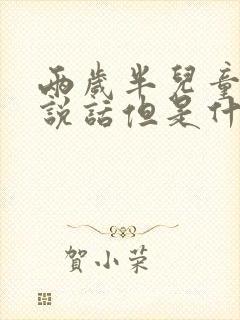 兩歲半兒童
說話但是什
賀小荣